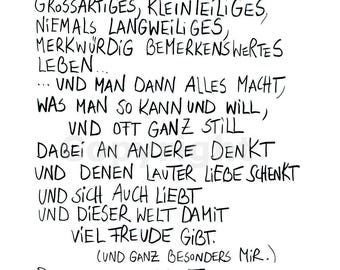 GROSSARTIGES, KLEINTEILIGES,
NIEMALS LANGWEILIGES,
MERKWÜRDIG BEMERKENSWERTES
LEBEN...
... UND MAN DANN ALLES MACHT,
WAS MAN SO KANN UND WILL,
UND OFT GANZ STILL
DABEI AN ANDERE DENKT
UND DENEN LAUTER LIEBE SCHENKT
UND SICH AUCH LIEBT
UND DIESER WELT DAMIT
VIEL FREUDE GIBT.
(UND GANZ BESONDERS MIR.)